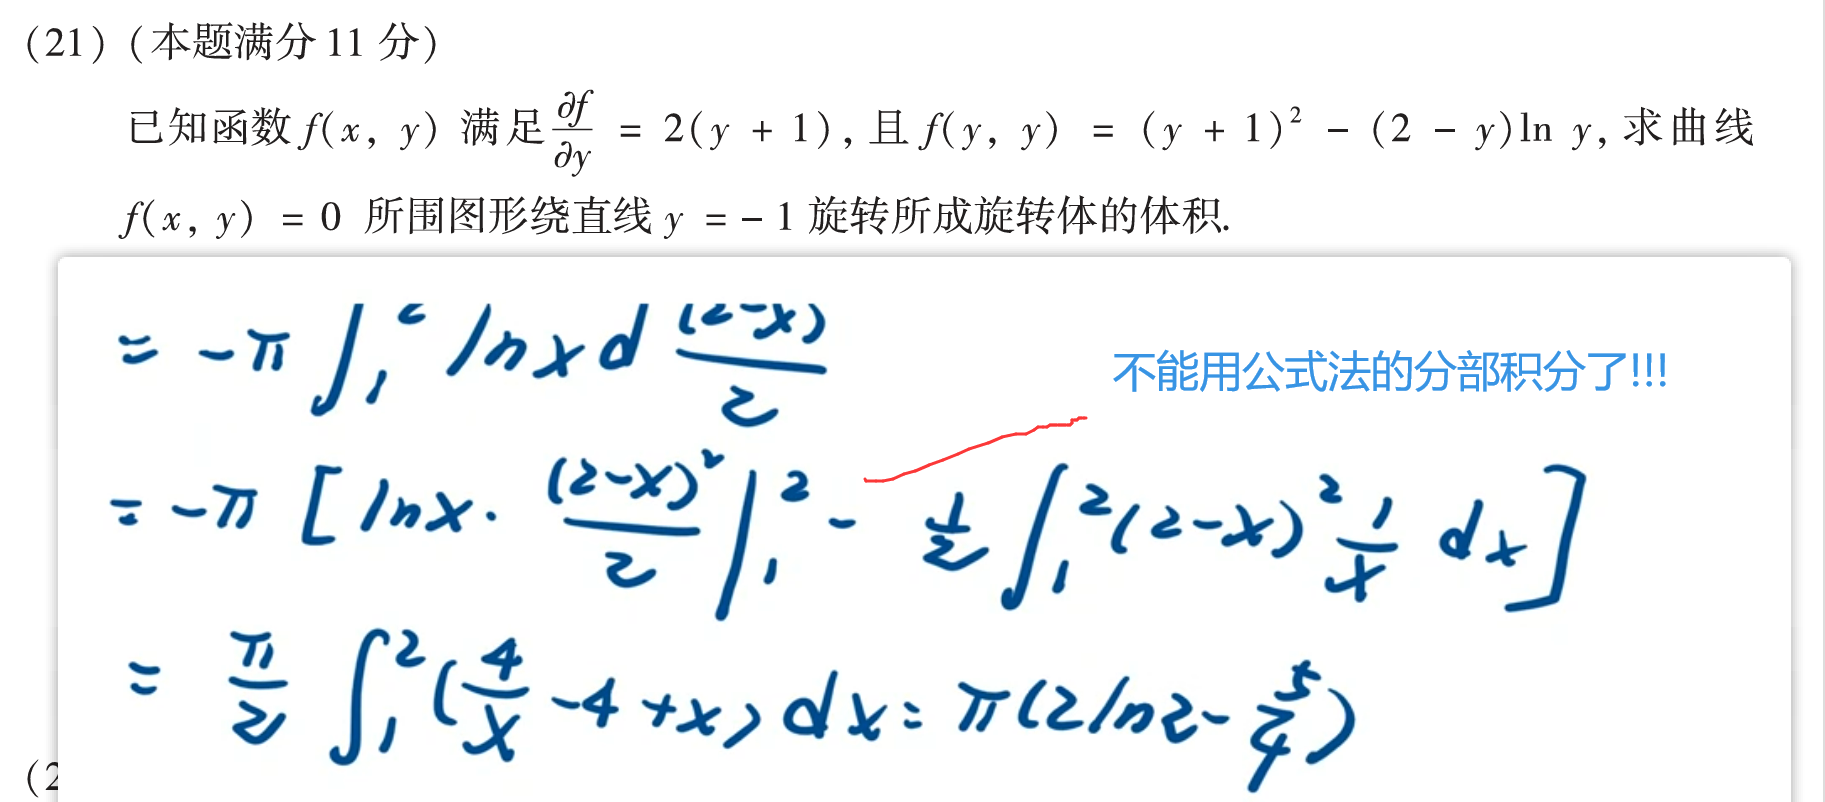 (21) (本题满分 11 分)
已知函数 f(x, y) 满足 ∂f/∂y = 2(y + 1), 且 f(y, y) = (y + 1)² - (2 - y)ln y, 求曲线
f(x, y) = 0 所围图形绕直线 y = - 1 旋转所成旋转体的体积.
= -π ∫₁² ln x d (2-x)/2
不能用公式法的分部积分了!!!
= -π [ ln x · (2-x)²/2 |₁² - 1/2 ∫₁² (2-x)² 1/x dx ]
= π/2 ∫₁² (4/x - 4 + x) dx = π(2ln2 - 5/4)
(2